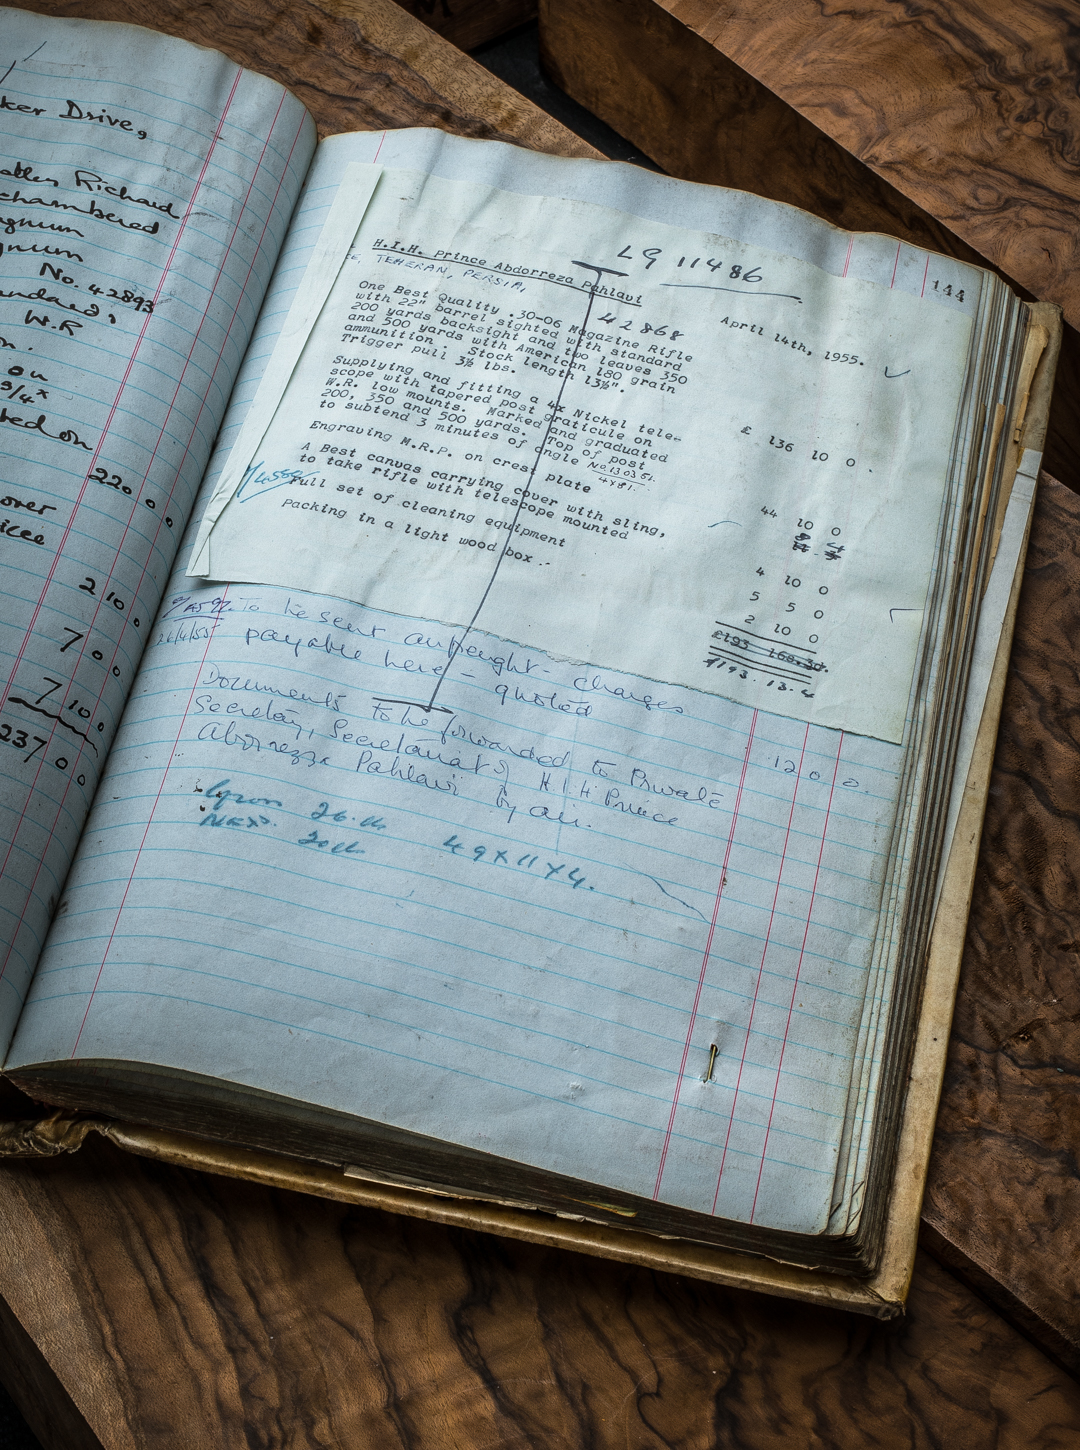 ker Drive,
Richard
chambered
gnum
gnum
No. 42893
W.R
n.
on
3/4"
ted on
220 0 0
over
2 10 0
7 0 0
7 10 0
237 0 0
144
LG 11486
H.I.H. prince Abdorreza Pahlavi
TEHERAN, PERSIA,
April 14th, 1955.
42868
One Best Quality .30-06 Magazine Rifle
with 22" barrel sighted with standard
200 yards backsight and two leaves 350
and 500 yards with American 180 grain
ammunition. Stock length 13⅜".
Trigger pull 3½ lbs.
£ 136 10 0.
Supplying and fitting a 4x Nickel tele-
scope with tapered post graticule on
W.R. low mounts. Marked and graduated
200, 350 and 500 yards. Top of post
to subtend 3 minutes of angle
4x81.
44 10 0
Engraving M.R.P. on crest plate
A Best canvas carrying cover with sling,
to take rifle with telescope mounted
4 10 0
Full set of cleaning equipment
5 5 0
Packing in a light wood box..
2 10 0
£193
£193.13.4
To be sent airfreight - charges
26/4/55
payable here - quoted
12 0 0.
Documents to be forwarded to Private
Secretary, Secretariat of H.I.H Prince
Aborrezza Pahlavi by air.
26.
49x11x4.